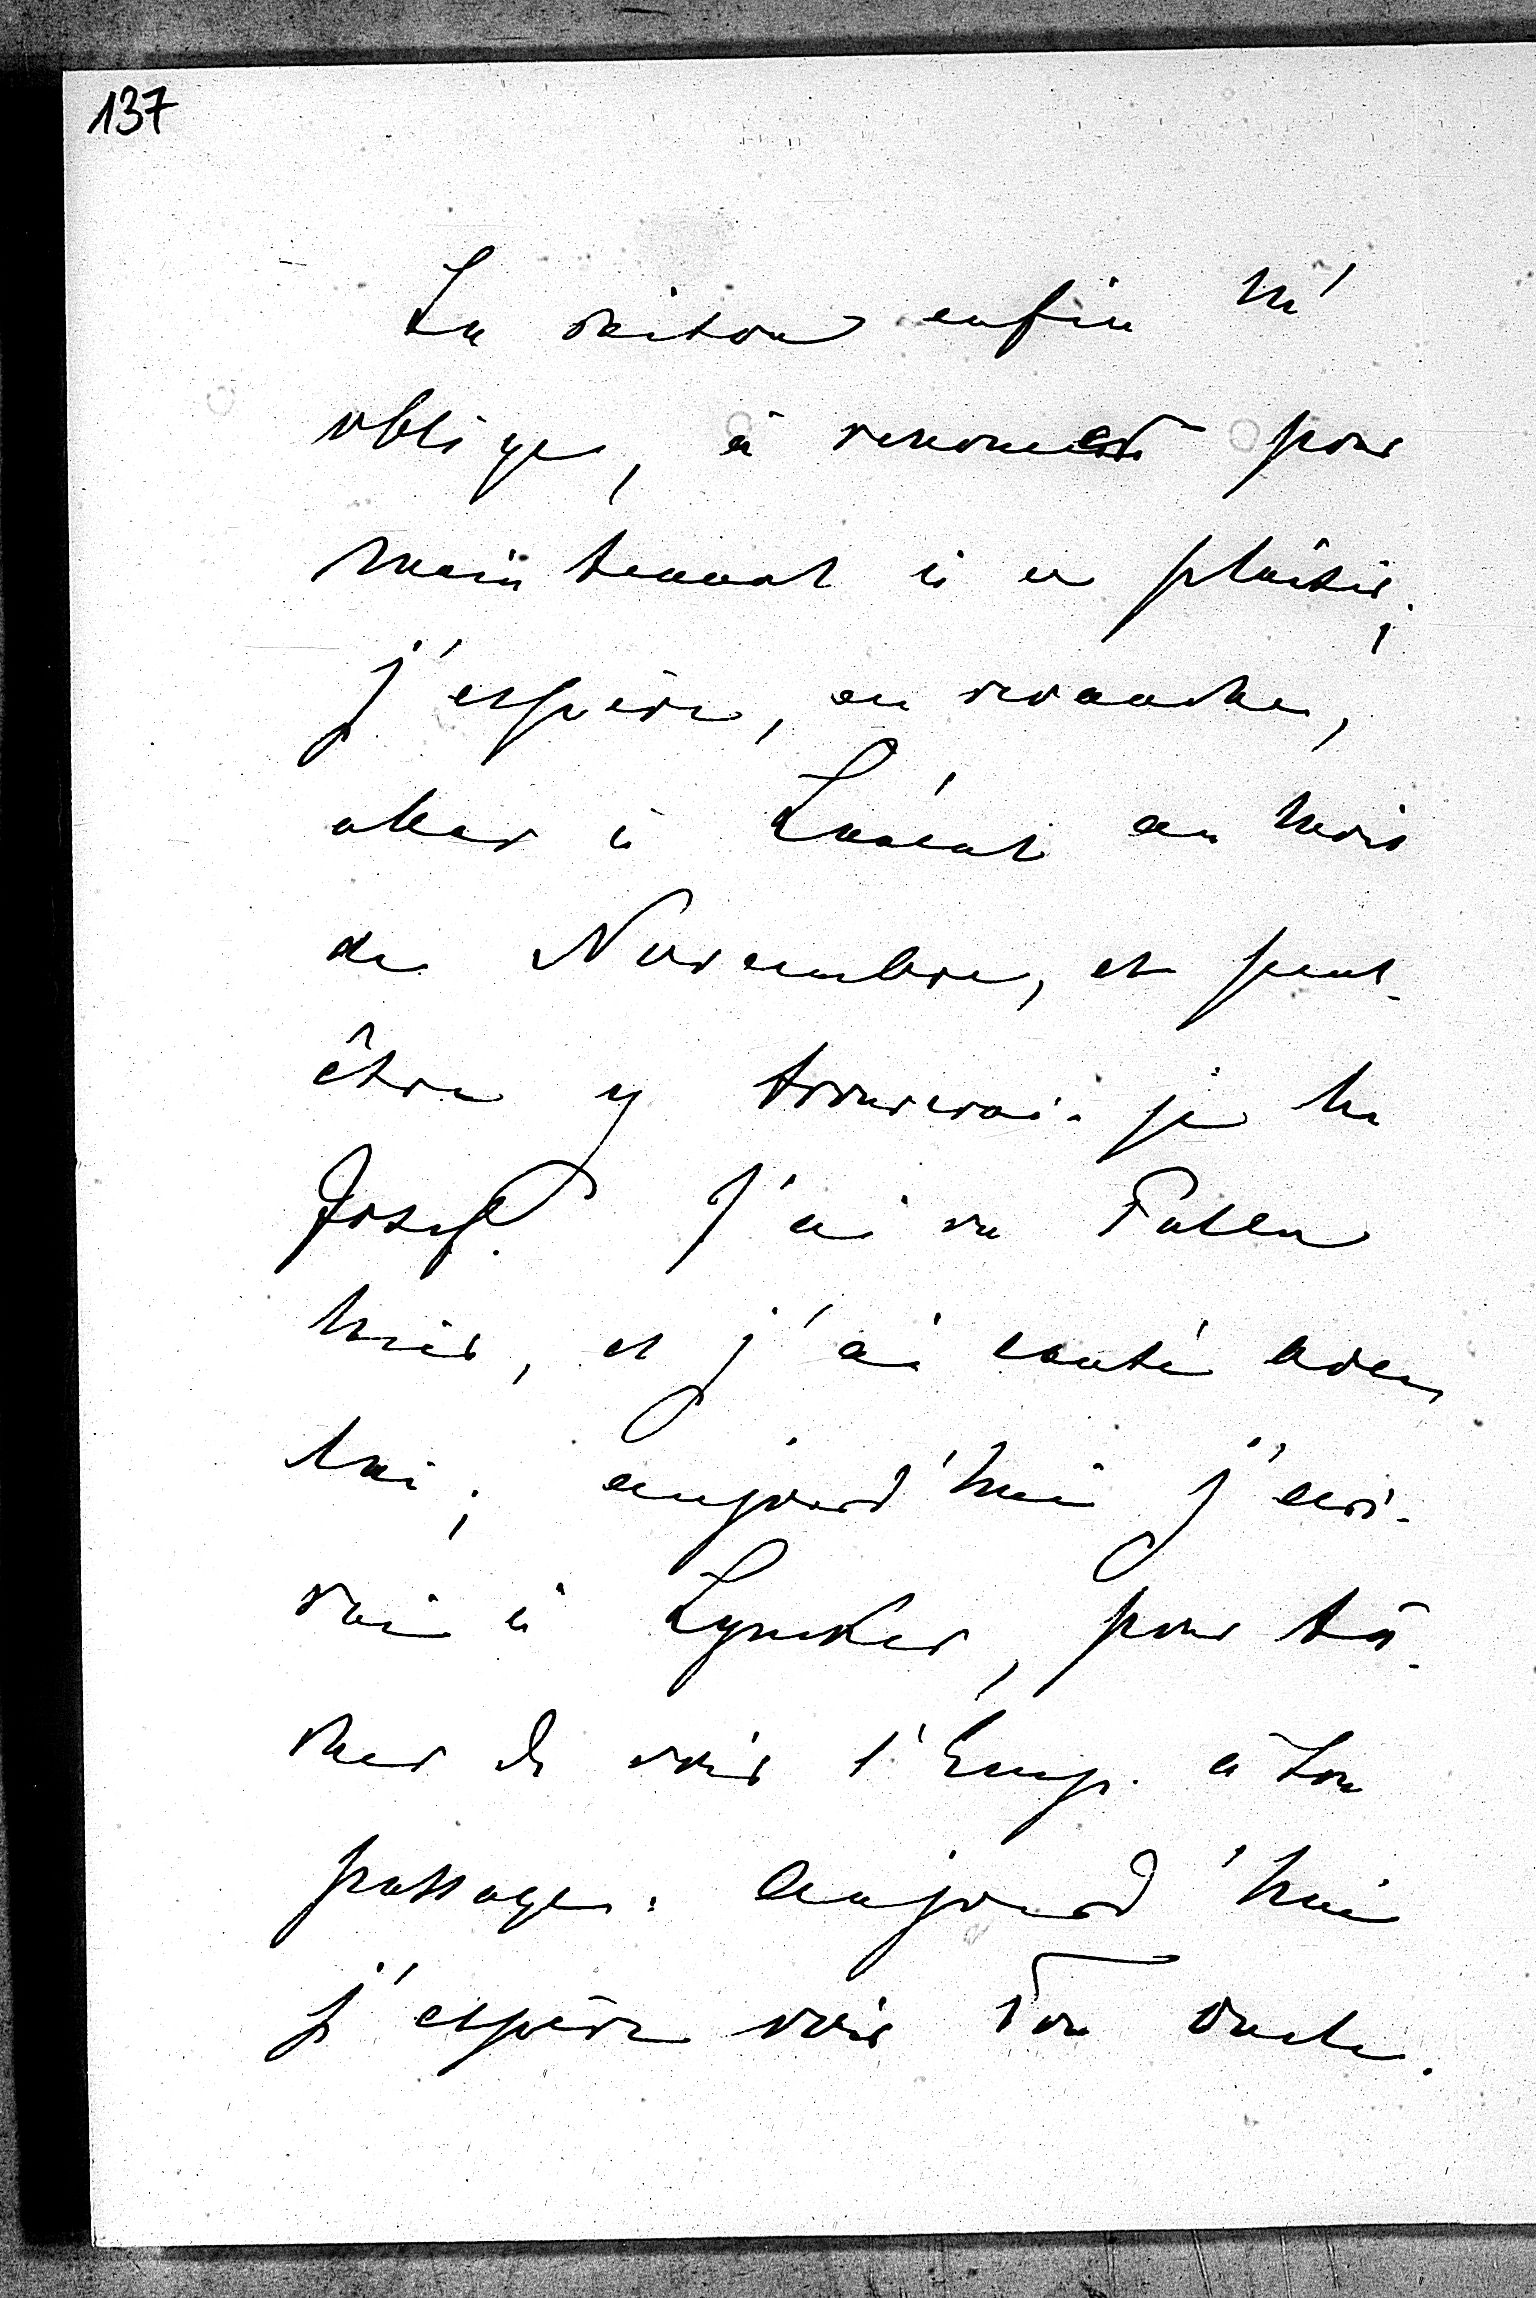 137
La raison enfin m'
oblige, à renoncer pour
maintenant à ce plaisir;
j'espère, en revanche,
aller à Láncut au mois
de Novembre, et peut-
être y trouverai-je ma
Josef. J'ai vu Palen
hier, et j'ai causé avec
lui; aujourd'hui j'écri-
rai à Lyncker, pour tâ-
cher de voir l'Emp. à son
passage. Aujourd'hui
j'espère voir Ton oncle.